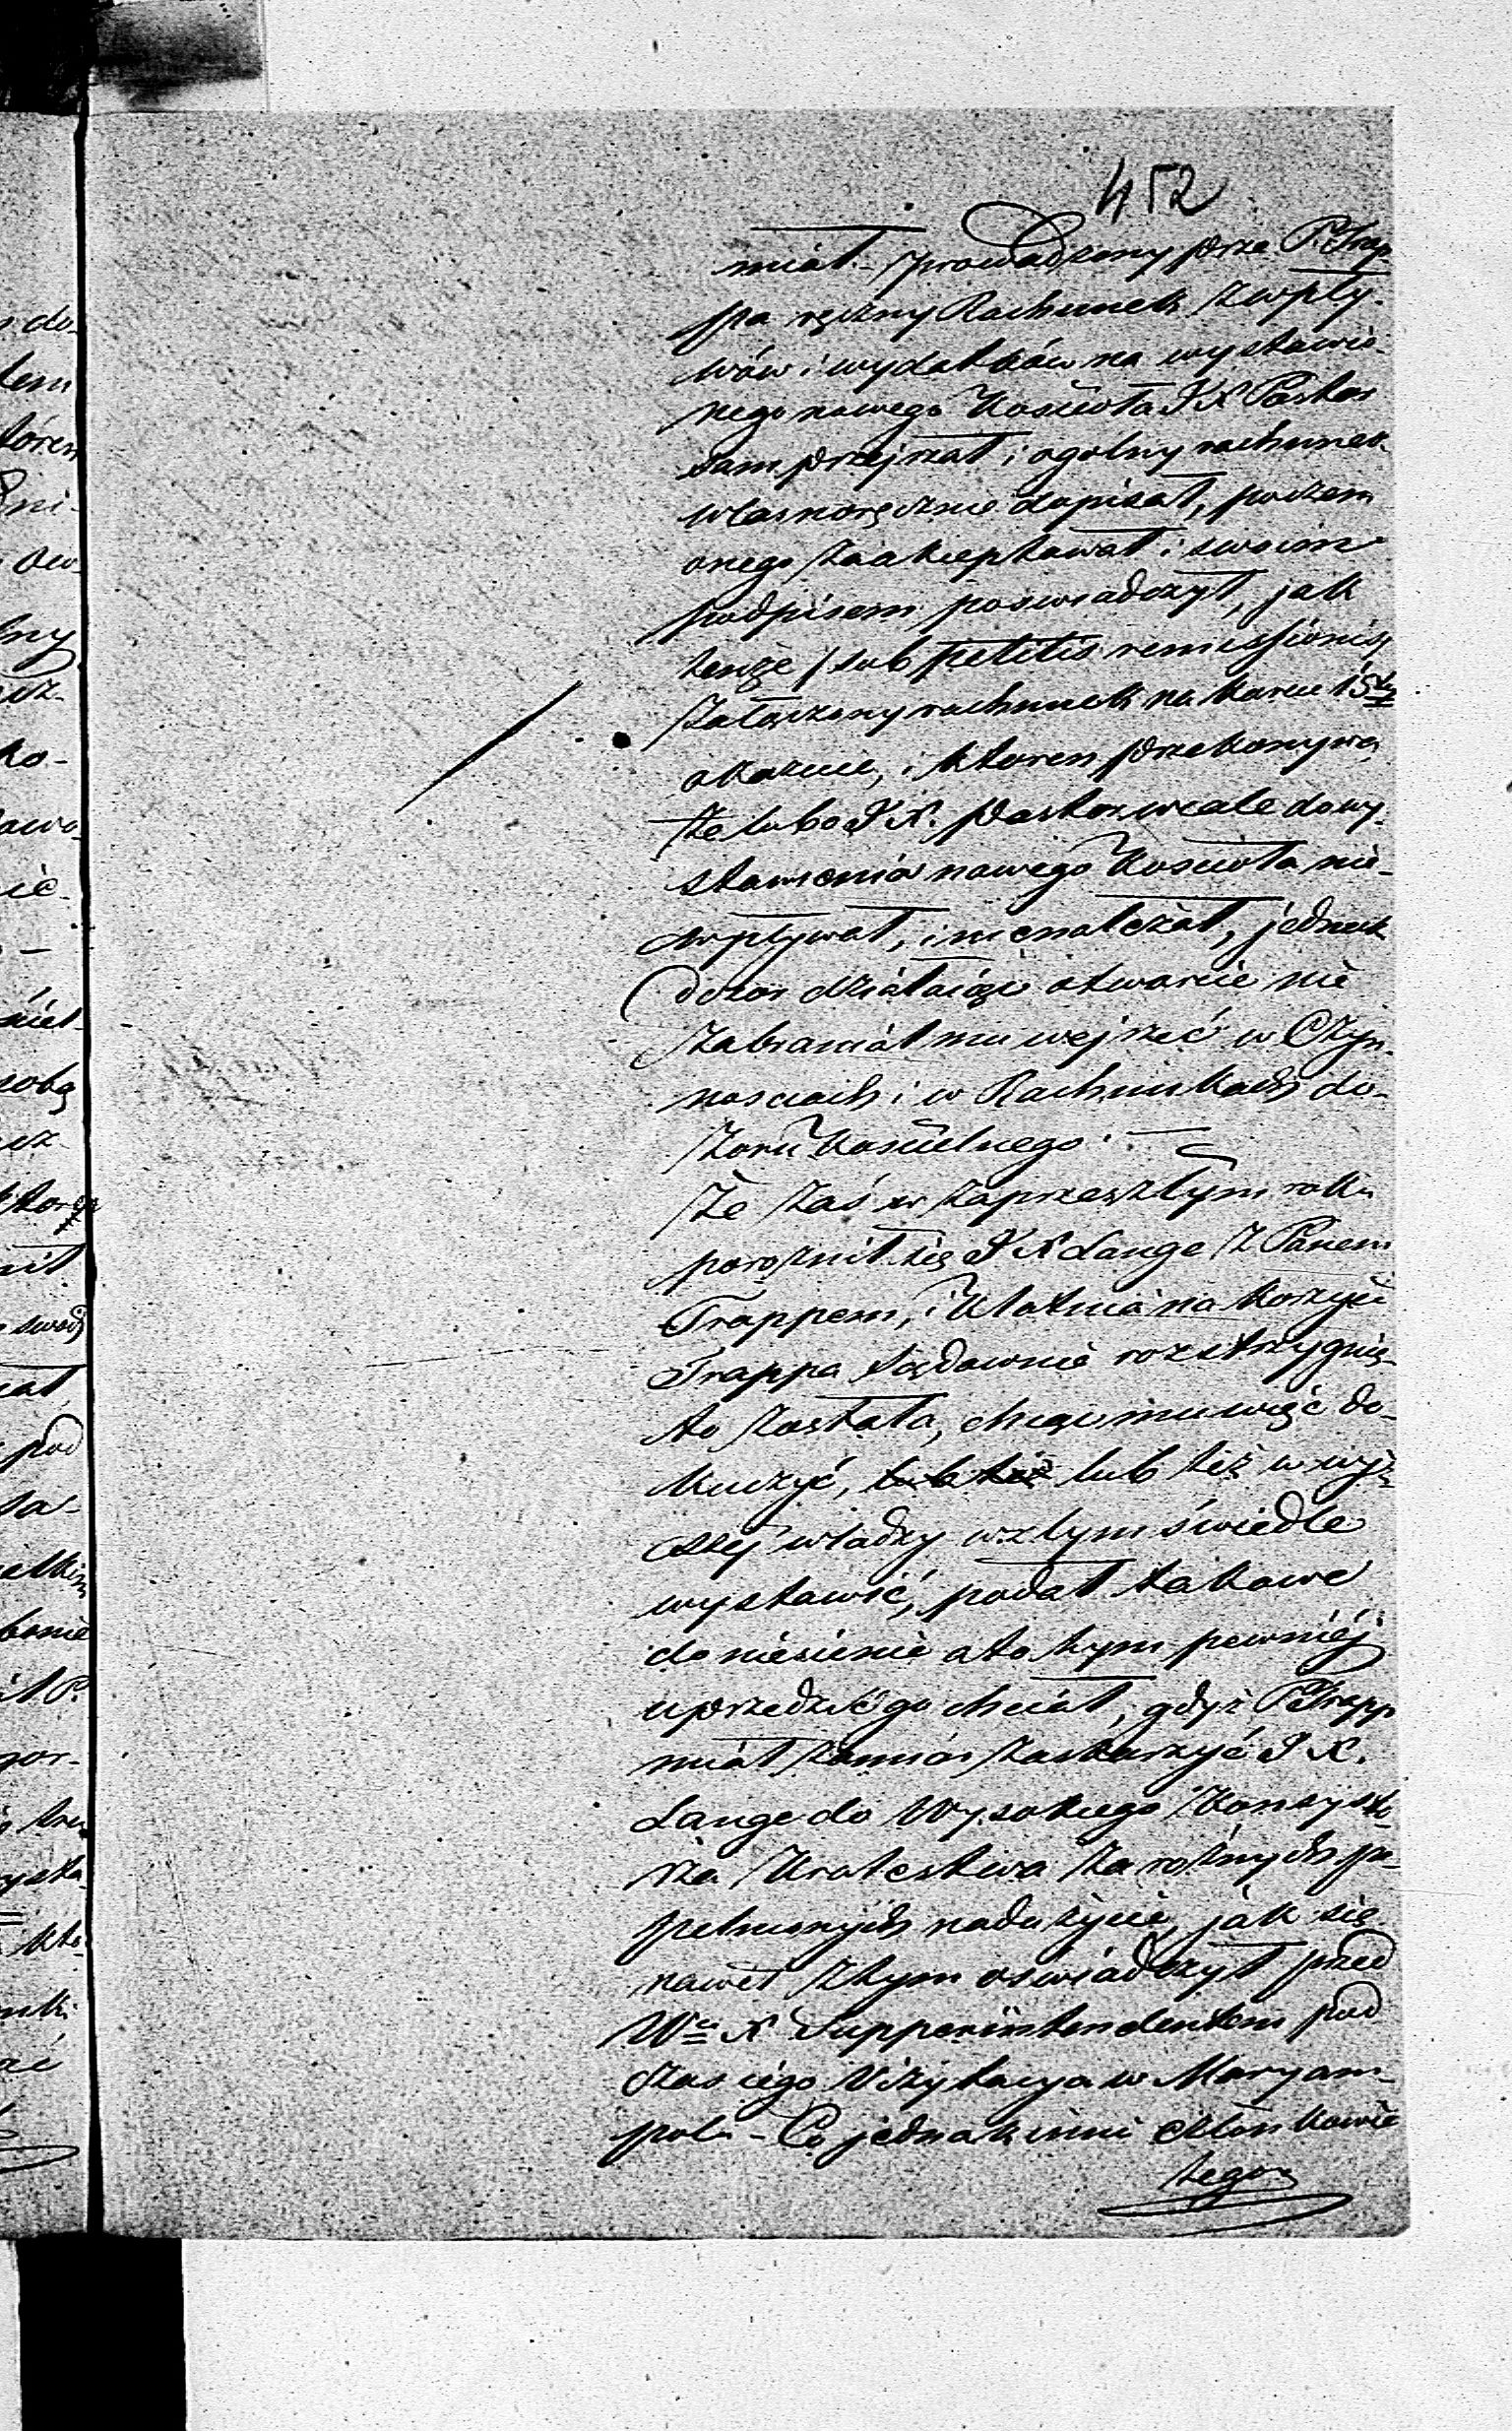 452
miał – prowadzony prze P. Trap
pa ręczny Rachunek z wpły-
wów i wydatków na wystawio-
nego nowego Kościoła J X Pastor
sam przejrzał i ogolny rachunek
własnoręcznie dopisał, poczem
onego zaakceptował i swoim
podpisem poswiadczył, jak
tenże / sub petitis remissionis /
załączony rachunek na karcie 15tej
okazuie, i ktoren przekonywa
że lubo J X. Pastor wcale do wy-
stawienia nowego Kościoła nie-
wpływał, i nienależał, jednak
Dozor działaiąc otwarcie nie
zabraniał mu wejrzeć w Czyn-
nosciach i w Rachunkach do-
zoru Kościelnego. –
Że zaś w zaprzeszłym roku
porożnił się J X Lange z Panem
Trappem, i Kłotnia na korzyść
Trappa sądownie rozstrzygnię-
to została, chcąc mu więc do-
kuczyć, lub też lub też w wyż-
szej władzy w złym świedle
wystawić, podał takowe
doniesienie a to tym pewniéj
uprzedzić go chciał, gdyż P Trapp
miał zamiar zaskarzyć J X.
Lange do Wysokiego Konsysto-
rza Krolestwa za rożnych po-
pełnionych nadużycie, jak się
nawet z tym oswiadczył przed
Wm X Supperintendentem pod
czas iégo Vizytacya w Maryam-
polu – Co jednak inni członkowie
tegoż
do-
tem
tóren
ni-
ny
ko-
ie
–
sobą
it
swoj
pod
sa-
it P.
por-
kto